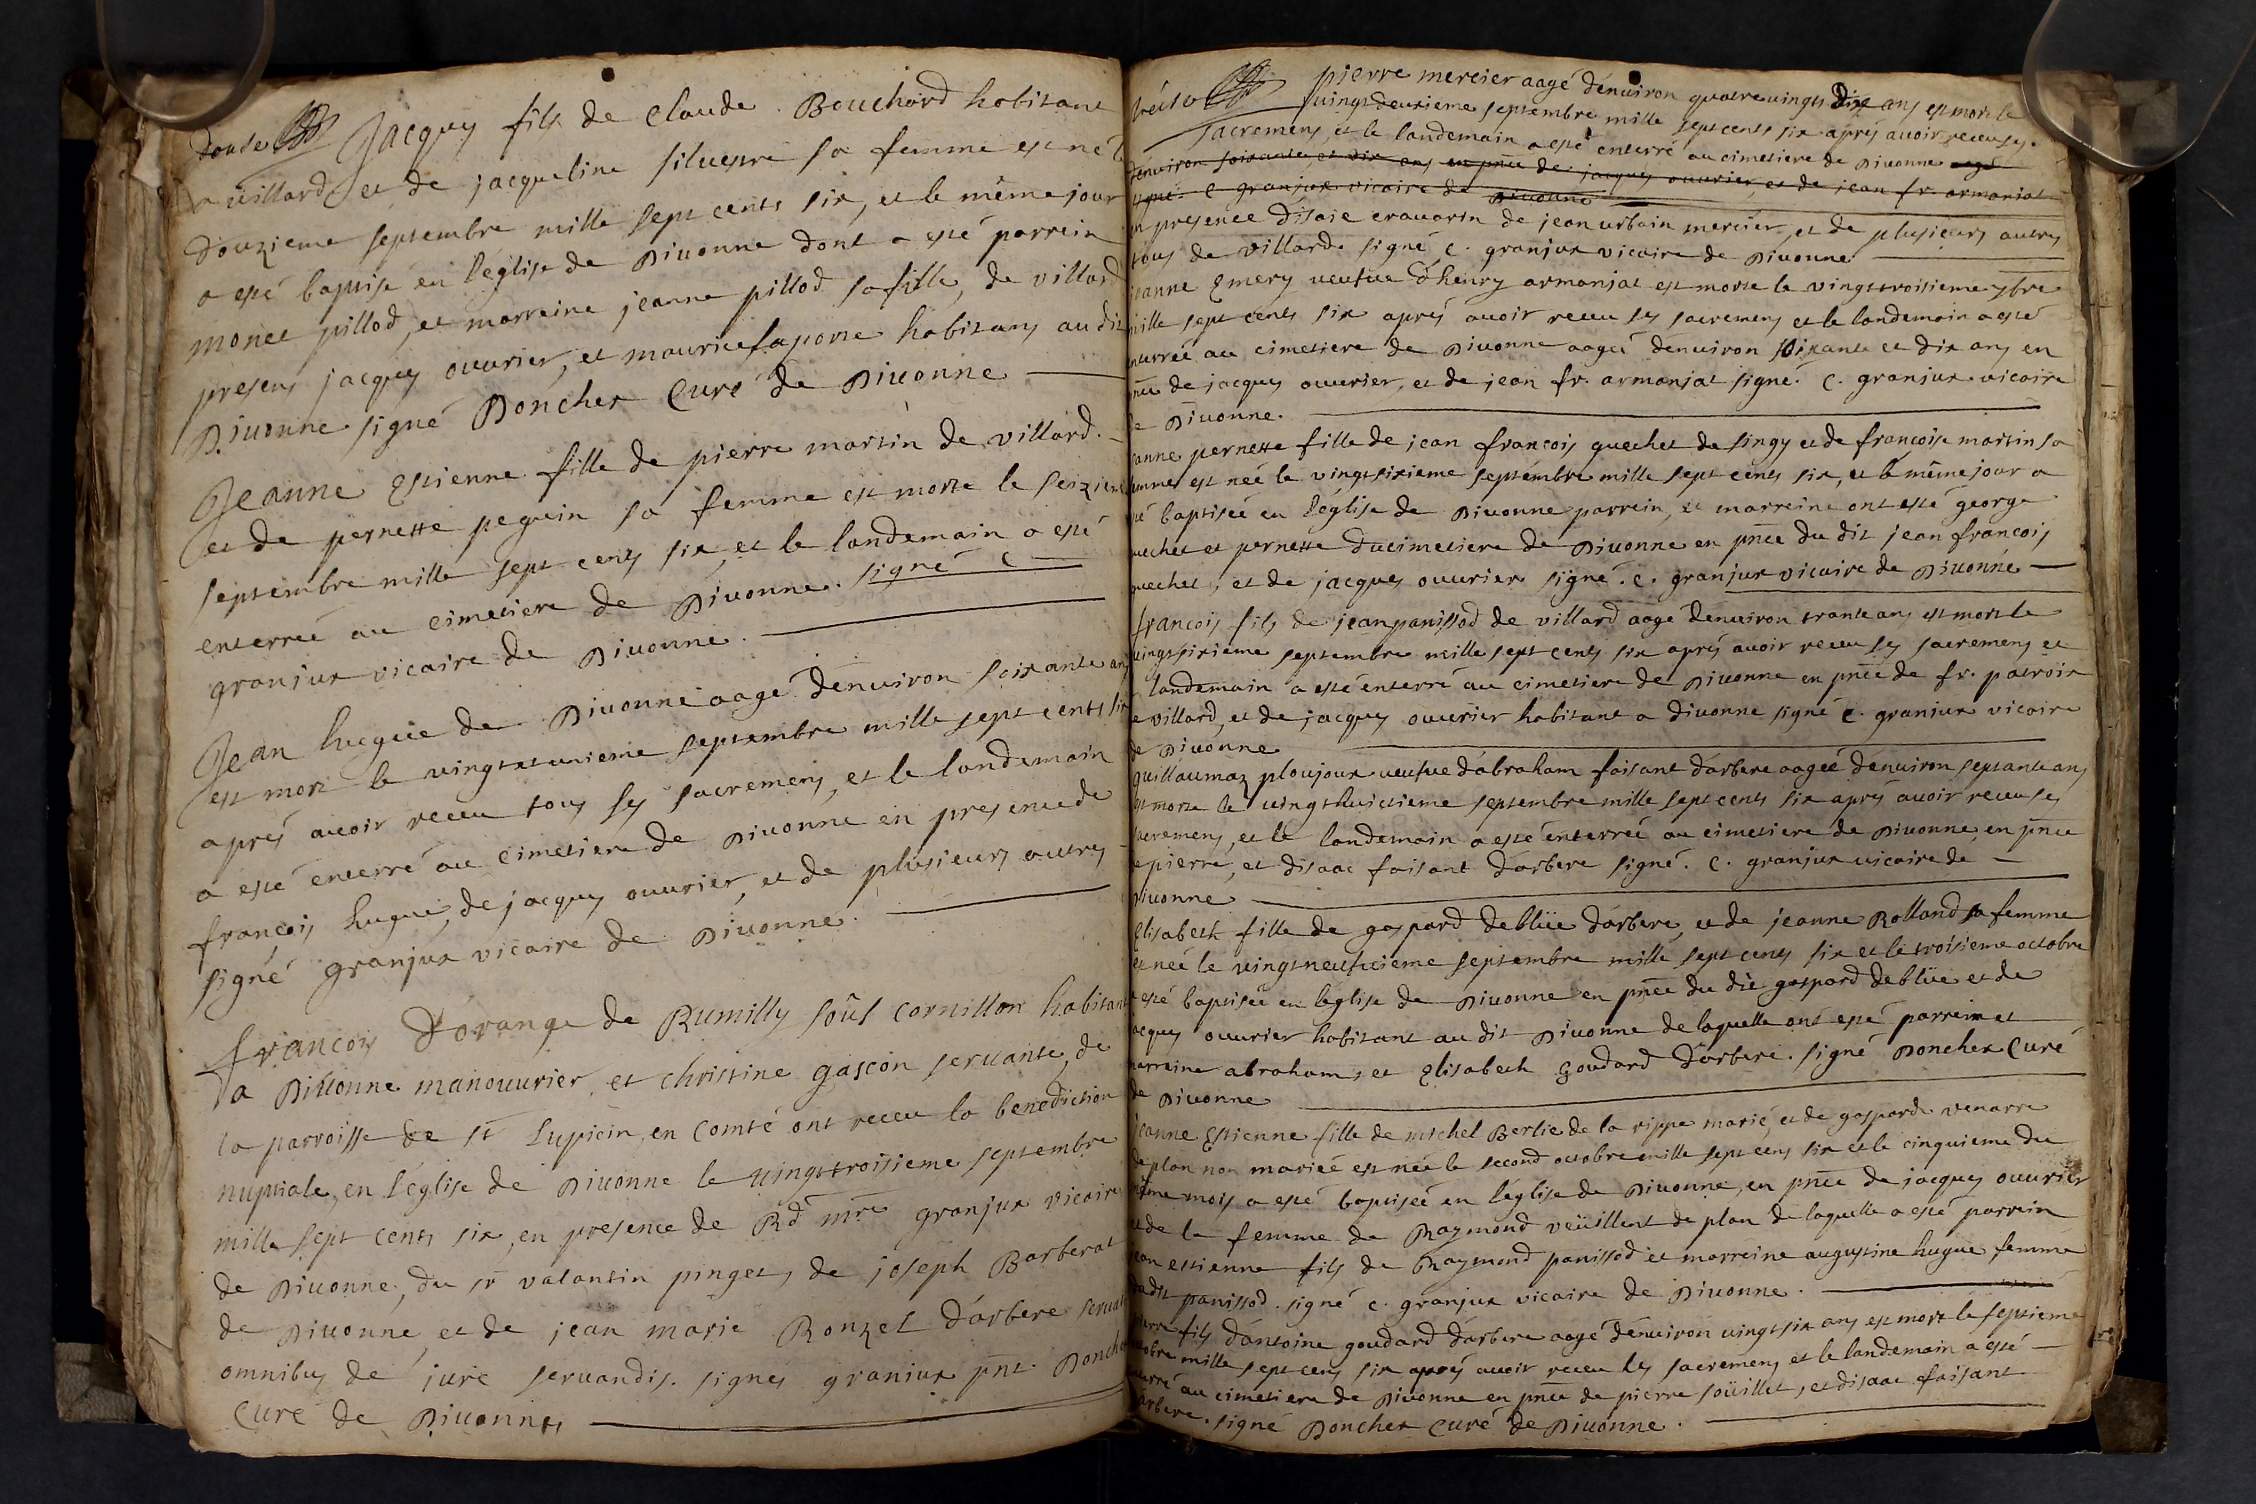 douse Jacques fils de claude Bouchard habitant
a villard et de jacqueline siluestre sa femme est né le
douzieme septembre mille sept cents six, et le même jour
a esté baptisé en l'église de Diuonne dont a esté parrein
monet pillod, et marreine jeanne pillod sa fille, de villard
presens jacques ouurier, et maurice laporte habitans au dit
Diuonne signé Doncher Curé de Diuonne
Jeanne Estienne fille de pierre martin de villard.
et de pernette peguin sa femme est morte le seizieme
septembre mille sept cents six, et le landemain a esté
enterreé au cimetiere de Diuonne. signé C
granjux vicaire de Diuonne.
Jean hugue de Diuonne aagé d'enuiron soixante ans
est mort le vingtetunieme septembre mille sept cents six
aprés auoir receu tous ses sacremens, et le landemain
a esté enterré au cimetiere de Diuonne en presence de
françois hugue, de jacques ouurier, et de plusieurs autres
signé granjux vicaire de Diuonne.
françois d'orange de Rumilly soûs cornillon habitant
a Diuonne manouurier et christine gascon seruante, de
la parroisse de st Lupicin, en Comté ont receu la benediction
nuptiale, en l'église de Diuonne le vingttroisieme septembre
mille sept cents six, en presence de Rd mre granjux vicaire
de Diuonne, du sr valantin pinget, de joseph Barberat
de Diuonne, et de jean marie Ronzet d'arbere seruatis
omnibus de jure seruandis. signes granjux pnt. Doncher
Curé de Diuonne
treise pierre mercier aagé d'enuiron quatrevingts dix ans est mort le
vingtdeuxieme septembre mille sept cents six aprés auoir receu ses
sacremens, et le landemain a esté enterré au cimetiere de Diuonne aagé
d'enuiron soixante et dix ans en pnce de jacques ouurier, et de jean fr. armanjat
signé. C granjux vicaire de Diuonne
en presence d'isaie crauarin de jean urbain mercier, et de plusieurs autres
tous de villard. signé C. granjux vicaire de Diuonne
jeanne Emery veufue d'henry armanjat est morte le vingttroisieme 7bre
mille sept cents six aprés auoir receu ses sacremens et le landemain a esté
enterreé au cimetiere de Diuonne aageé d'enuiron soixante et dix ans en
pnce de jacques ouurier, et de jean fr. armanjat signé. C. granjux vicaire
de Diuonne.
jeanne pernette fille de jean françois quechet de singy et de françoise martin sa
femme est née le vingtsixieme septembre mille sept cents six, et le même jour a
esté baptiseé en l'église de Diuonne parrein, et marreine ont esté george
quechet et pernette ducimetiere de Diuonne en pnce du dit jean françois
quechet, et de jacques ouurier signé. C. granjux vicaire de Diuonne
françois fils de jean panissod de villard aagé d'enuiron trante ans est mort le
vingtsixieme septembre mille sept cents six aprés auoir receu ses sacremens et
le landemain a esté enterré au cimetiere de Diuonne en pnce de fr. patroix
de villard, et de jacques ouurier habitant a diuonne signé C. granjux vicaire
de Diuonne
guillaumaz ploujoux veufue d'abraham faisant d'arbere aageé d'enuiron septante ans
est morte le vingthuictieme septembre mille sept cents six aprés auoir receu ses
sacremens, et le landemain a esté enterreé au cimetiere de Diuonne, en pnce
de pierre, et d'isaac faisant d'arbere signé. C. granjux vicaire de
Diuonne
Elisabeth fille de gaspard deblüe d'arbere, et de jeanne Rolland sa femme
est neé le vingtneufuieme septembre mille sept cents six et le troisieme octobre
a esté baptiseé en l'église de Diuonne en pnce du dit gaspard deblüe et de
jacques ouurier habitant au dit Diuonne de laquelle ont esté parrein et
marreine abraham, et Elisabeth goudard d'arbere. signé Doncher Curé
de Diuonne
jeanne Estienne fille de michel Berlie de la rippe marié, et de gasparde venarre
de plan non marieé est neé le second octobre mille sept cens six et le cinquieme du
même mois a esté baptiseé en l'église de Diuonne, en pnce de jacques ouurier
et de la femme de Raymond veüillet de plan de laquelle a esté parrein
jean estienne fils de Raymond panissod et marreine augustine hugue femme
dudit panissod. signé C. granjux vicaire de Diuonne.
pierre fils d'antoine goudard d'arbere aagé d'enuiron vingtsix ans est mort le septieme
octobre mille sept cens six aprés auoir receu les sacremens et le landemain a esté
enterré au cimetiere de Diuonne en pnce de pierre soüillet, et d'isaac faisant
d'arbere. signé Doncher Curé de Diuonne.